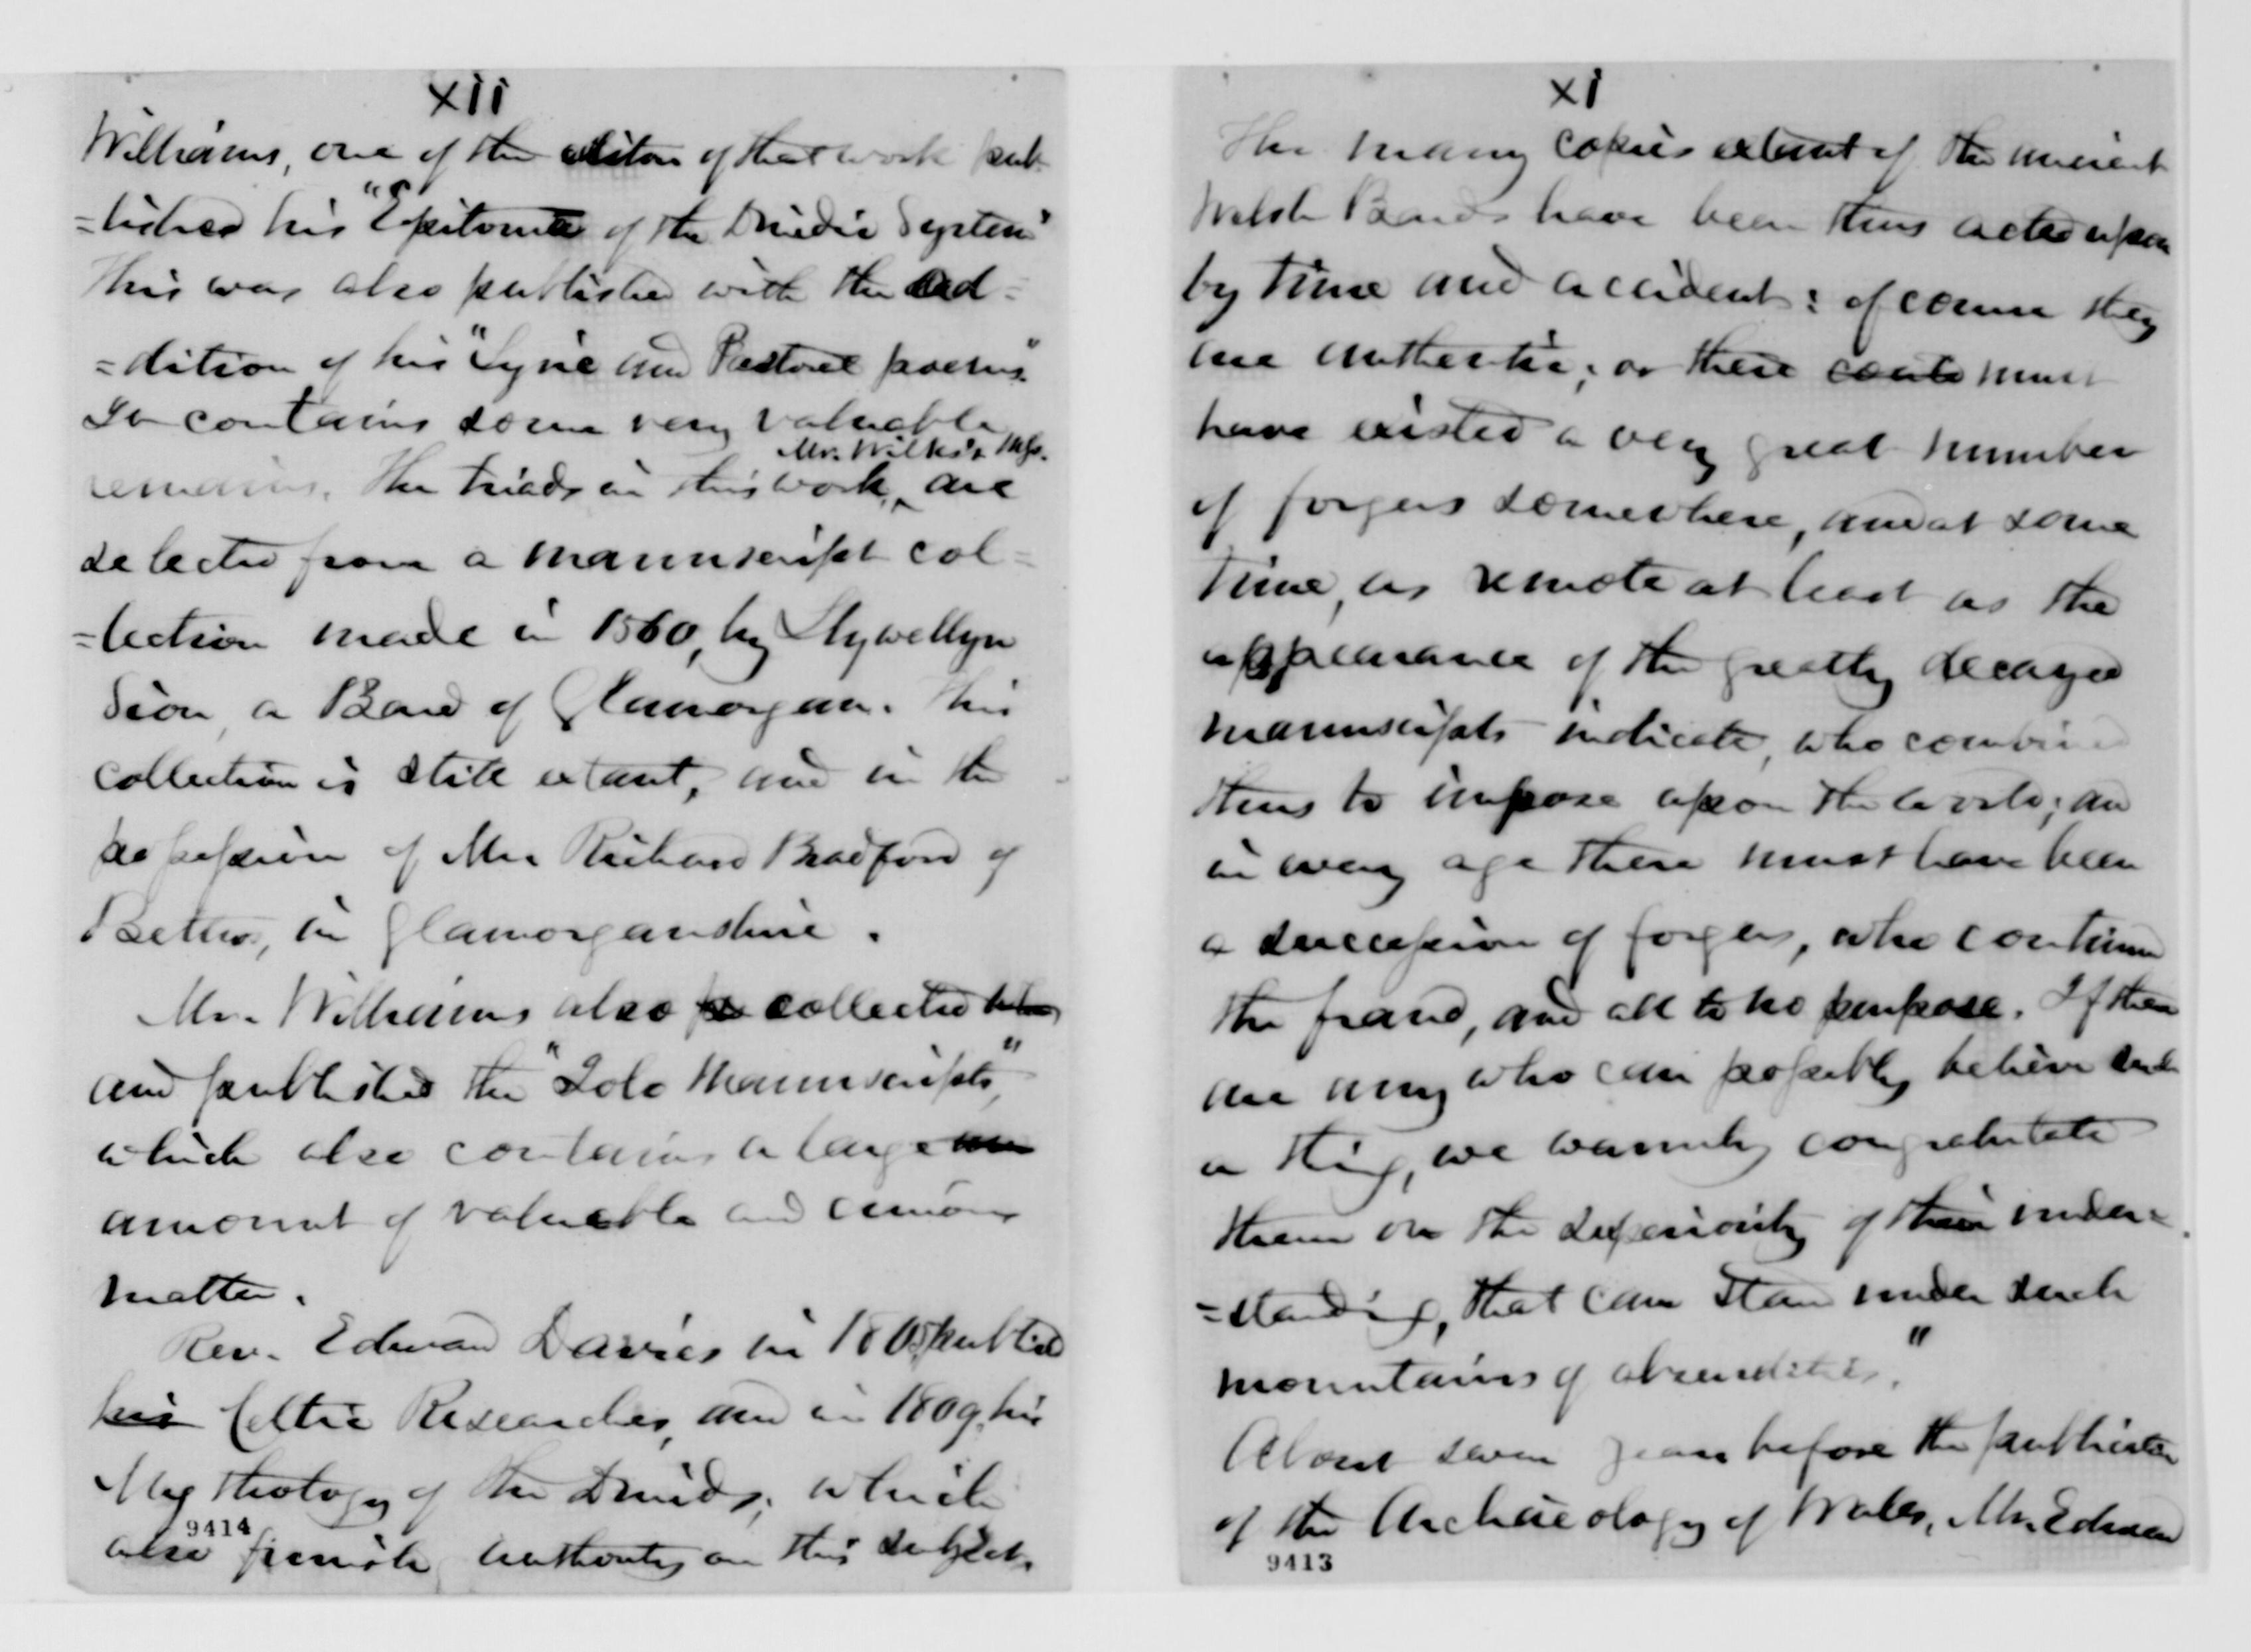 xi
The many copies extant of the ancient
Welsh Bards have been thus acted upon
by time and accident: of course they
are authentic; or there could must
have existed a very great number
of forgers somewhere, and at some
time, as remote at least as the
appearance of the greatly decayed
manuscripts indicate, who combined
thus to impose upon the world; and
in every age there must have been
a succession of forgers, who continued
the fraud, and all to no purpose. If there
are any who can possibly believe such
a thing, we warmly congratulate
them on the superiority of their under=
=standing, that can stand under such
mountains of absurdities."
About seven years before the publication
of the Archaeology of Wales, Mr. Edward
9413
xii
Williams, one of the editors of that work pub-
=lished his "Epitome of the Druidic System"
This was also published with the ad=
=dition of his "Lyric and Pastoral poems."
It contains some very valuable
remains. The triads in this work, Mr. Wilks's Mss. are
selected from a manuscript col=
=lection made in 1560, by Llywellyn
Sion, a Bard of Glamorgan. This
collection is still extant, and in the
possession of Mr. Richard Bradford of
Bettws, in Glamorganshire.
Mr. Williams also collected
and published the "Iolo Manuscripts,"
which also contains a large
amount of valuable and curious
matter.
Rev. Edward Davies in 1805 publish'd
his Celtic Researches, and in 1809, his
Mythology of the Druids; which
also furnish authority on this subject.
9414